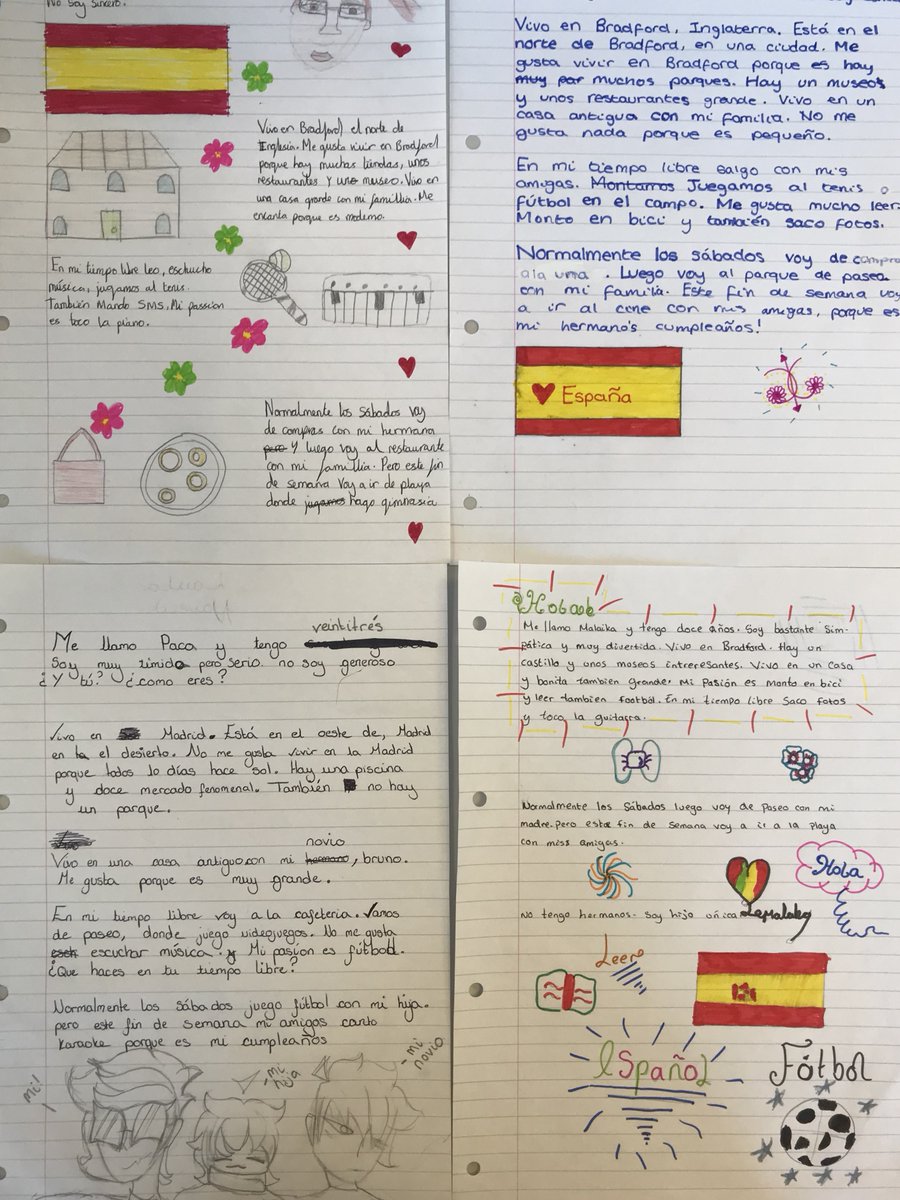 No soy sincero.
Vivo en Bradford el norte de
Inglesia. Me gusta vivir en Bradford
porque hay muchas tiendas, unos
restaurantes y uno museo. Vivo en
una casa grande con mi famillia. Me
encanta porque es moderno.
En mi tiempo libre leo, eschucho
música, jugamos al tenis.
También Mando SMS. Mi passion
es toco la piano.
Normalmente los sábados voy
de compras con mi hermana
pero y luego voy al restaurante
con mi famillia. Pero este fin
de semana voy a ir de playa
donde jugamos hago gimnasia
Vivo en Bradford, Inglaterra. Está en el
norte de Bradford, en una ciudad. Me
gusta vivir en Bradford porque es hay
muy par muchos parques. Hay un museos
y unos restaurantes grande. Vivo en un
casa antigua con mi familia. No me
gusta nada porque es pequeño.
En mi tiempo libre salgo con mis
amigas. Montamos Juegamos al tenis o
fútbol en el campo. Me gusta mucho leer.
Monto en bici y también saco fotos.
Normalmente los sábados voy de compra
a la una. Luego voy al parque de pasea
con mi familia. Este fin de semana voy
a ir al cine con mis amigas, porque es
mi hermano's cumpleaños!
España
veintitrés
Me llamo Paca y tengo
Soy muy timida pero serio. no soy generoso
¿Y tú? ¿como eres?
Vivo en Madrid. Está en el oeste de, Madrid
en la el desierto. No me gusta vivir en la Madrid
porque todos lo días hace sol. Hay una piscina
y doce mercado fenomenal. También no hay
un parque.
novio
Vivo en una casa antiguo con mi hermano, bruno.
Me gusta porque es muy grande.
En mi tiempo libre voy a la cafeteria. Vamos
de paseo, donde juego videojuegos. No me gusta
esch escuchar música. y Mi pasión es fútboll.
¿Que haces en tu tiempo libre?
Normalmente los sábados juego fútbol con mi hija.
pero este fin de semana mi amigos canto
Karaoke porque es mi cumpleaños
mi!
- mi hija
- mi novio
Me llamo Malaika y tengo doce años. Soy bastante Sim-
pática y muy divertida. Vivo en Bradford. Hay un
castillo y unos moseos intreresantes. Vivo en un Casa
y bonita tambien grande. Mi Pasión es monto en bici
y leer tambien football. En mi tiempo libre Saco fotos
y toco la guitarra.
Normalmente los Sábados luego voy de Paseo con mi
madre. Pero esta fin de Semana voy a ir a la Playa
con miss amigas.
Hola
No tengo hermanos. Soy hijo única
Leero
Español
Fótbol